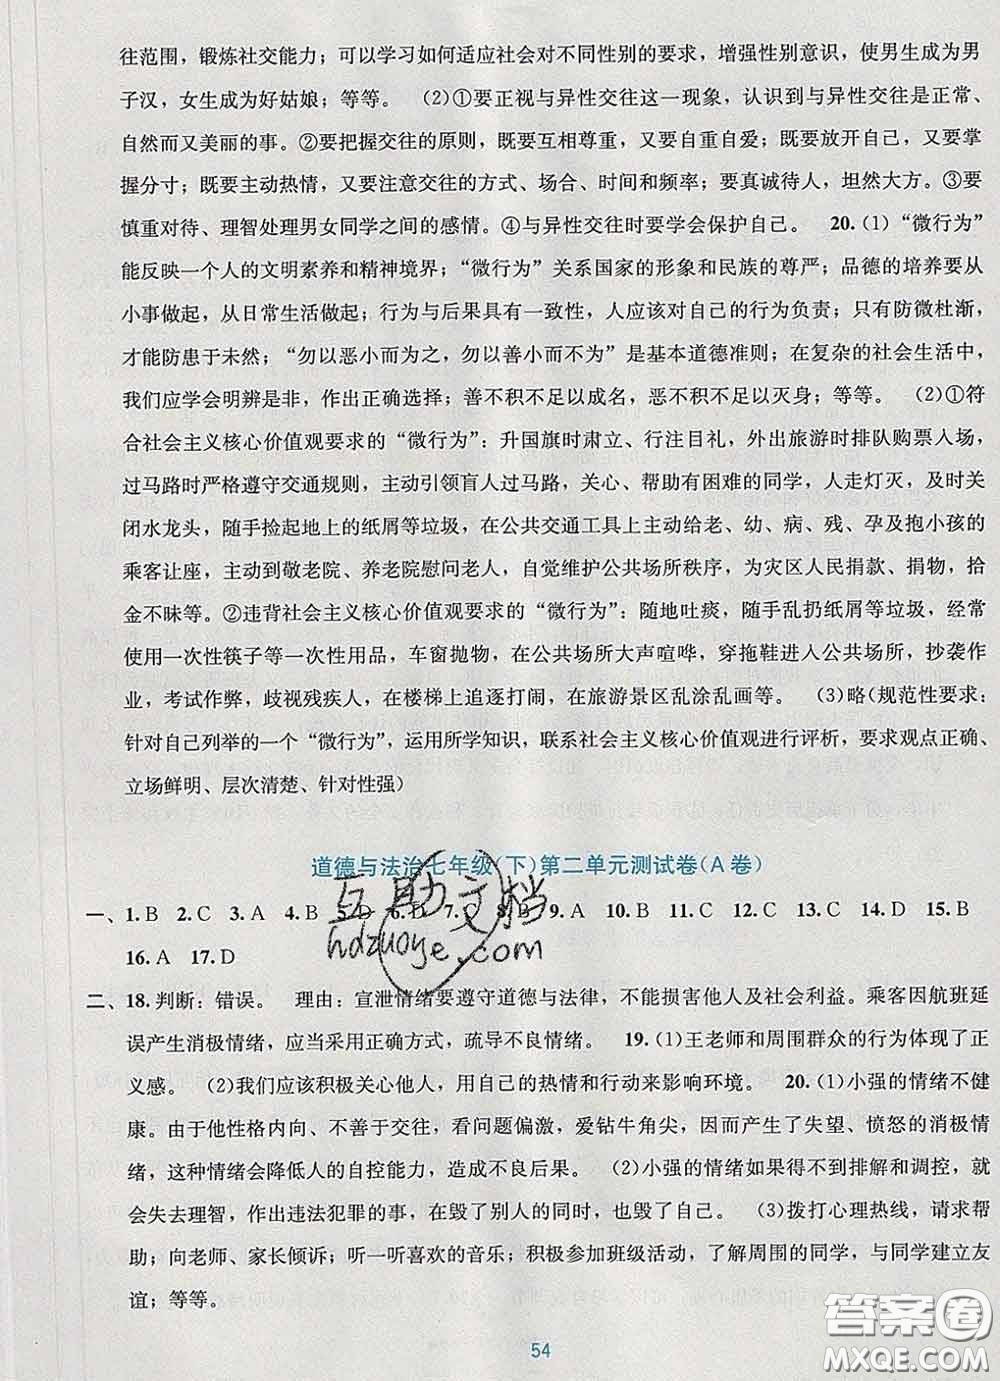 往范围，锻炼社交能力；可以学习如何适应社会对不同性别的要求，增强性别意识，使男生成为男
子汉，女生成为好姑娘；等等。 (2)①要正视与异性交往这一现象，认识到与异性交往是正常、
自然而又美丽的事。②要把握交往的原则，既要互相尊重，又要自重自爱；既要放开自己，又要掌
握分寸；既要主动热情，又要注意交往的方式、场合、时间和频率；要真诚待人，坦然大方。③要
慎重对待、理智处理男女同学之间的感情。④与异性交往时要学会保护自己。 20.(1)“微行为”
能反映一个人的文明素养和精神境界；“微行为”关系国家的形象和民族的尊严；品德的培养要从
小事做起，从日常生活做起；行为与后果具有一致性，人应该对自己的行为负责；只有防微杜渐，
才能防患于未然；“勿以恶小而为之，勿以善小而不为”是基本道德准则；在复杂的社会生活中，
我们应学会明辨是非，作出正确选择；善不积不足以成名，恶不积不足以灭身；等等。 (2)①符
合社会主义核心价值观要求的“微行为”：升国旗时肃立、行注目礼，外出旅游时排队购票入场，
过马路时严格遵守交通规则，主动引领盲人过马路，关心、帮助有困难的同学，人走灯灭，及时关
闭水龙头，随手捡起地上的纸屑等垃圾，在公共交通工具上主动给老、幼、病、残、孕及抱小孩的
乘客让座，主动到敬老院、养老院慰问老人，自觉维护公共场所秩序，为灾区人民捐款、捐物，拾
金不昧等。②违背社会主义核心价值观要求的“微行为”：随地吐痰，随手乱扔纸屑等垃圾，经常
使用一次性筷子等一次性用品，车窗抛物，在公共场所大声喧哗，穿拖鞋进入公共场所，抄袭作
业，考试作弊，歧视残疾人，在楼梯上追逐打闹，在旅游景区乱涂乱画等。 (3)略(规范性要求：
针对自己列举的一个“微行为”，运用所学知识，联系社会主义核心价值观进行评析，要求观点正确、
立场鲜明、层次清楚、针对性强)
道德与法治七年级(下)第二单元测试卷(A卷)
一、1.B 2.C 3.A 4.B 5.D 6.D 7. 8.B 9.A 10.B 11.C 12.C 13.C 14.D 15.B
16.A 17.D
二、18.判断：错误。 理由：宣泄情绪要遵守道德与法律，不能损害他人及社会利益。乘客因航班延
误产生消极情绪，应当采用正确方式，疏导不良情绪。 19.(1)王老师和周围群众的行为体现了正
义感。 (2)我们应该积极关心他人，用自己的热情和行动来影响环境。 20.(1)小强的情绪不健
康。由于他性格内向、不善于交往，看问题偏激，爱钻牛角尖，因而产生了失望、愤怒的消极情
绪，这种情绪会降低人的自控能力，造成不良后果。 (2)小强的情绪如果得不到排解和调控，就
会失去理智，作出违法犯罪的事，在毁了别人的同时，也毁了自己。 (3)拨打心理热线，请求帮
助；向老师、家长倾诉；听一听喜欢的音乐；积极参加班级活动，了解周围的同学，与同学建立友
谊；等等。
互助文档
hdzuoye.com
54
答案圈
MXQE.COM